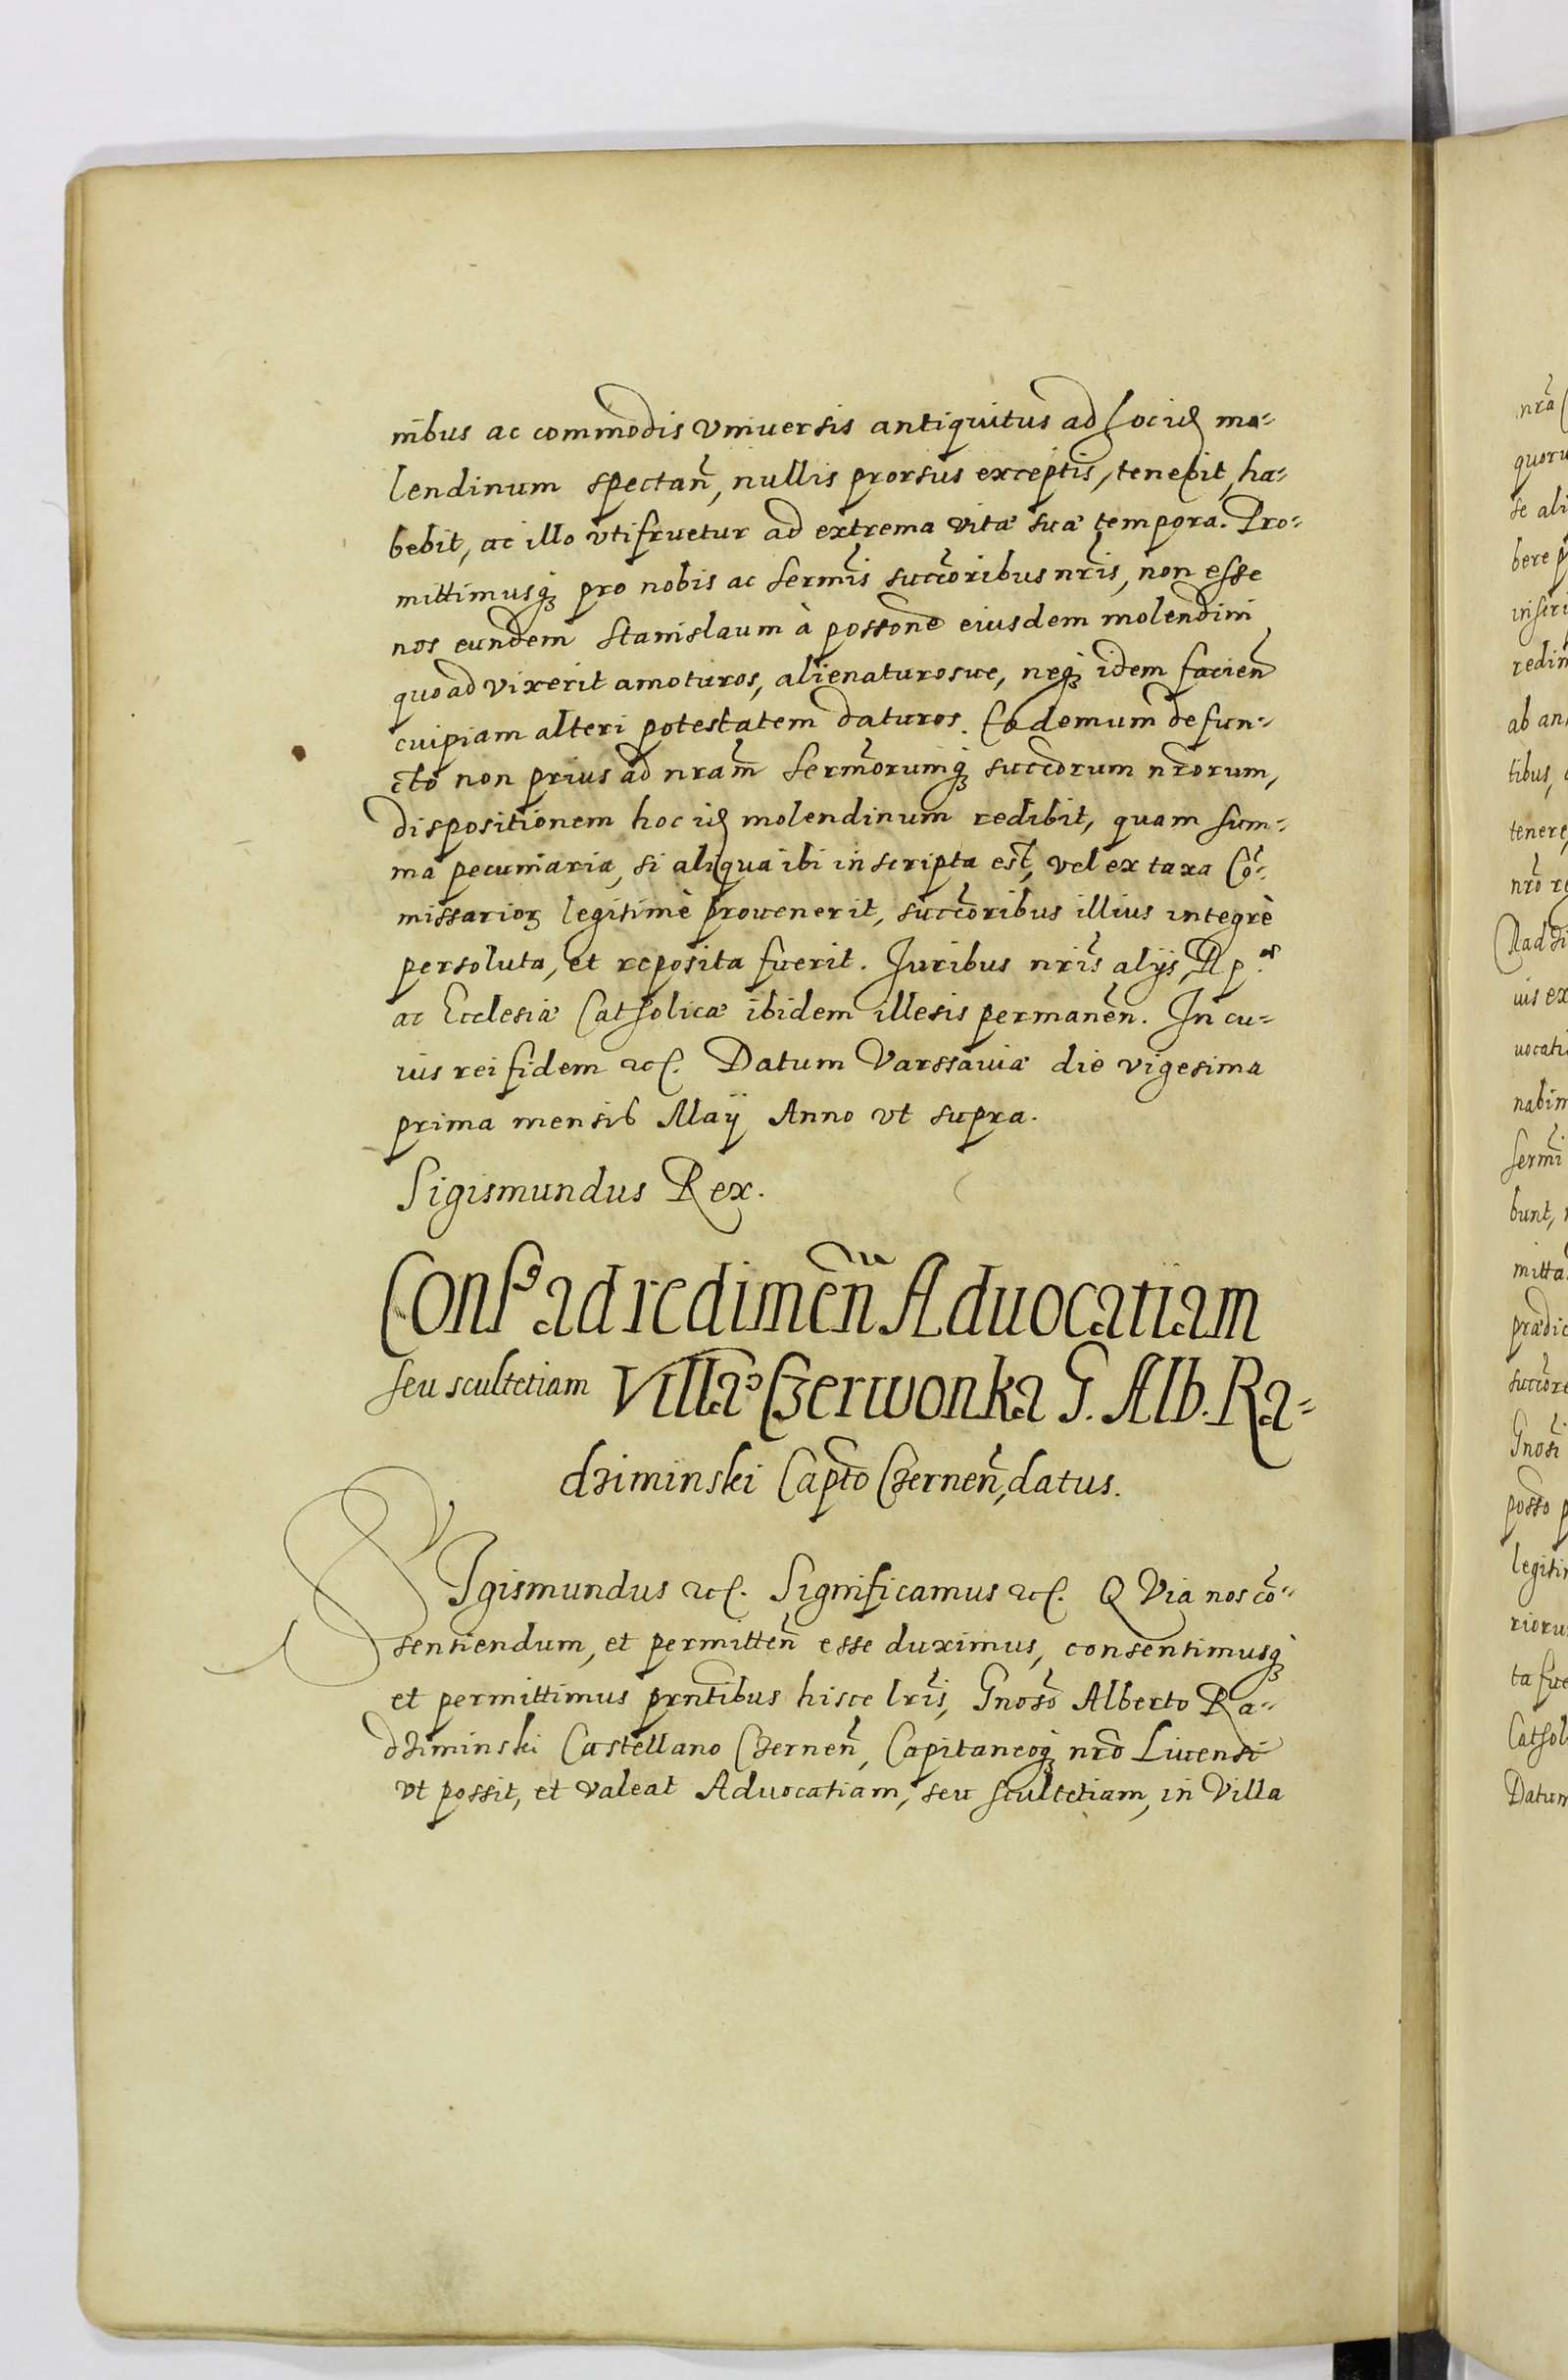 nibus ac commodis vniuersis antiquitus ad hoc id mo-
lendinum spectan̄, nullis prorsus exceptis, tenebit, ha-
bebit, ac illo vtifruetur ad extrema vitæ suæ tempora. Pro-
mittimusq́ꝫ pro nobis ac Serm̄is succōribus nr̄is, non esse
nos eundem Stanislaum à possōne eiusdem molendini
quoad vixerit amoturos, alienaturosue, neqꝫ idem facien̄
cuipiam alteri potestatem daturos. Eo demum defun-
cto non prius ad nrām̄ Serm̄orumqꝫ succōrum nr̄orum,
dispositionem hoc id molendinum redibit, quam sum-
ma pecuniaria, si aliqua ibi inscripta est, vel ex taxa Cō-
missarioꝝ legitimè prouenerit, succōribus illius integrè
persoluta, et reposita fuerit. Juribus nr̄is alijs, Rp.
ac Ecclesiæ Catholicæ ibidem illesis permanēn. In cu-
ius rei fidem ꝛc. Datum Varssauiæ die vigesima
prima mensis Maÿ Anno vt supra.
Sigismundus Rex.
Consꝰ ad redimen̄ Aduocatiam
seu scultetiam Villæ Czerwonka G. Alb. Ra-
dziminski Capto Czernen̄, datus.
SIgismundus ꝛc. Significamus ꝛc. QVia nos cō-
sentiendum, et permitten̄ esse duximus, consentimusqꝫ
et permittimus prn̄tibus hisce lr̄is, Gnoso Alberto Ra-
dziminski Castellano Czernen̄, Capitaneoqꝫ nrō Liuensi
vt possit, et valeat Aduocatiam, seu scultetiam, in Villa